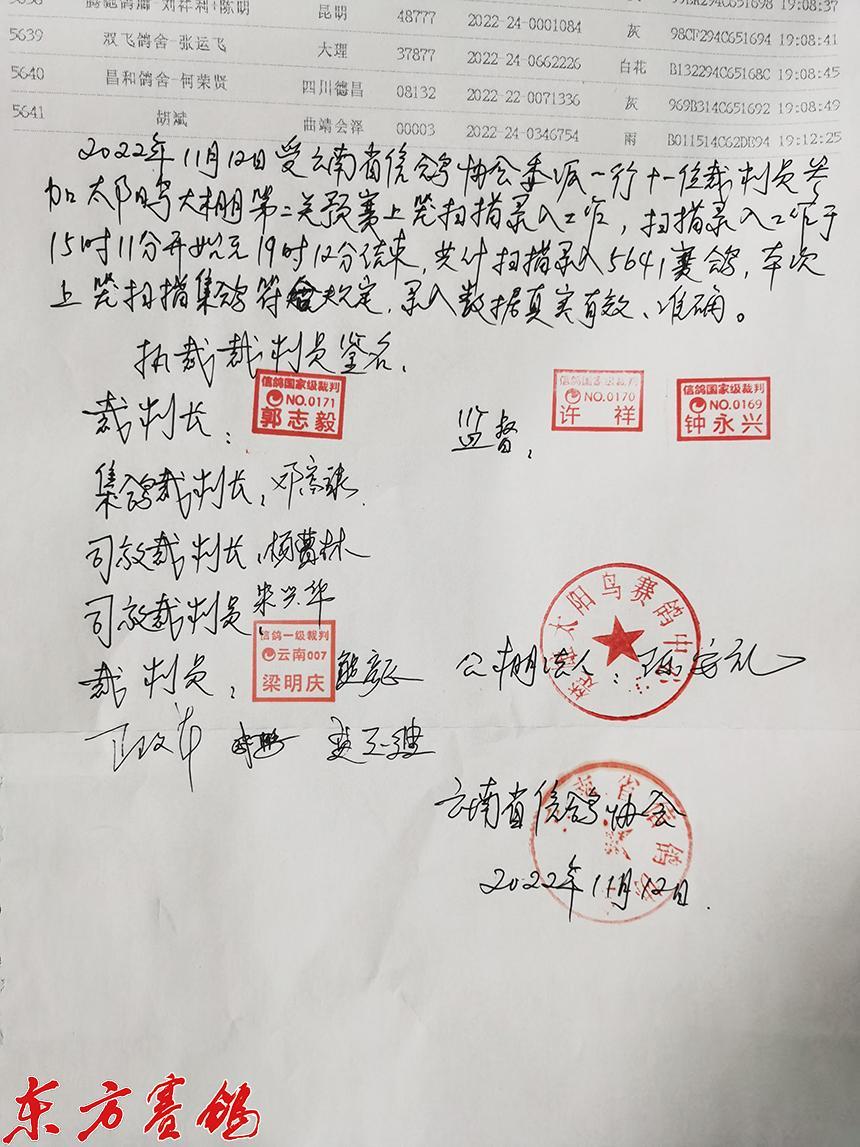 5638 腾驰鸽廊-刘祥利+陈明 昆明 48777 2022-24-0001084 灰 19:08:37
5639 双飞鸽舍-张运飞 大理 37877 2022-24-0662226 灰 98CF294C651694 19:08:41
5640 昌和鸽舍-何荣贤 四川德昌 08132 2022-22-0071336 白花 B132294C65168C 19:08:45
5641 胡斌 曲靖会泽 00003 2022-24-0346754 灰 969B314C651692 19:08:49
雨 B011514C62DE94 19:12:25
2022年11月12日受云南省信鸽协会委派一行十一位裁判员参
加太阳鸟大棚第二关预赛上笼扫描录入工作，扫描录入工作于
15时11分开始至19时12分结束，共计扫描录入5641赛鸽，本次
上笼扫描集鸽符合规定，录入数据真实有效、准确。
执裁裁判员鉴名，
裁判长：
信鸽国家级裁判
NO.0171
郭志毅
监督，
信鸽国家级裁判
NO.0170
许祥
信鸽国家级裁判
NO.0169
钟永兴
集鸽裁判长，
司放裁判长，
司放裁判员
裁判员，
信鸽一级裁判
云南007
梁明庆
公棚法人：
太阳鸟赛鸽中
云南省信鸽协会
2022年11月12日.
东方赛鸽